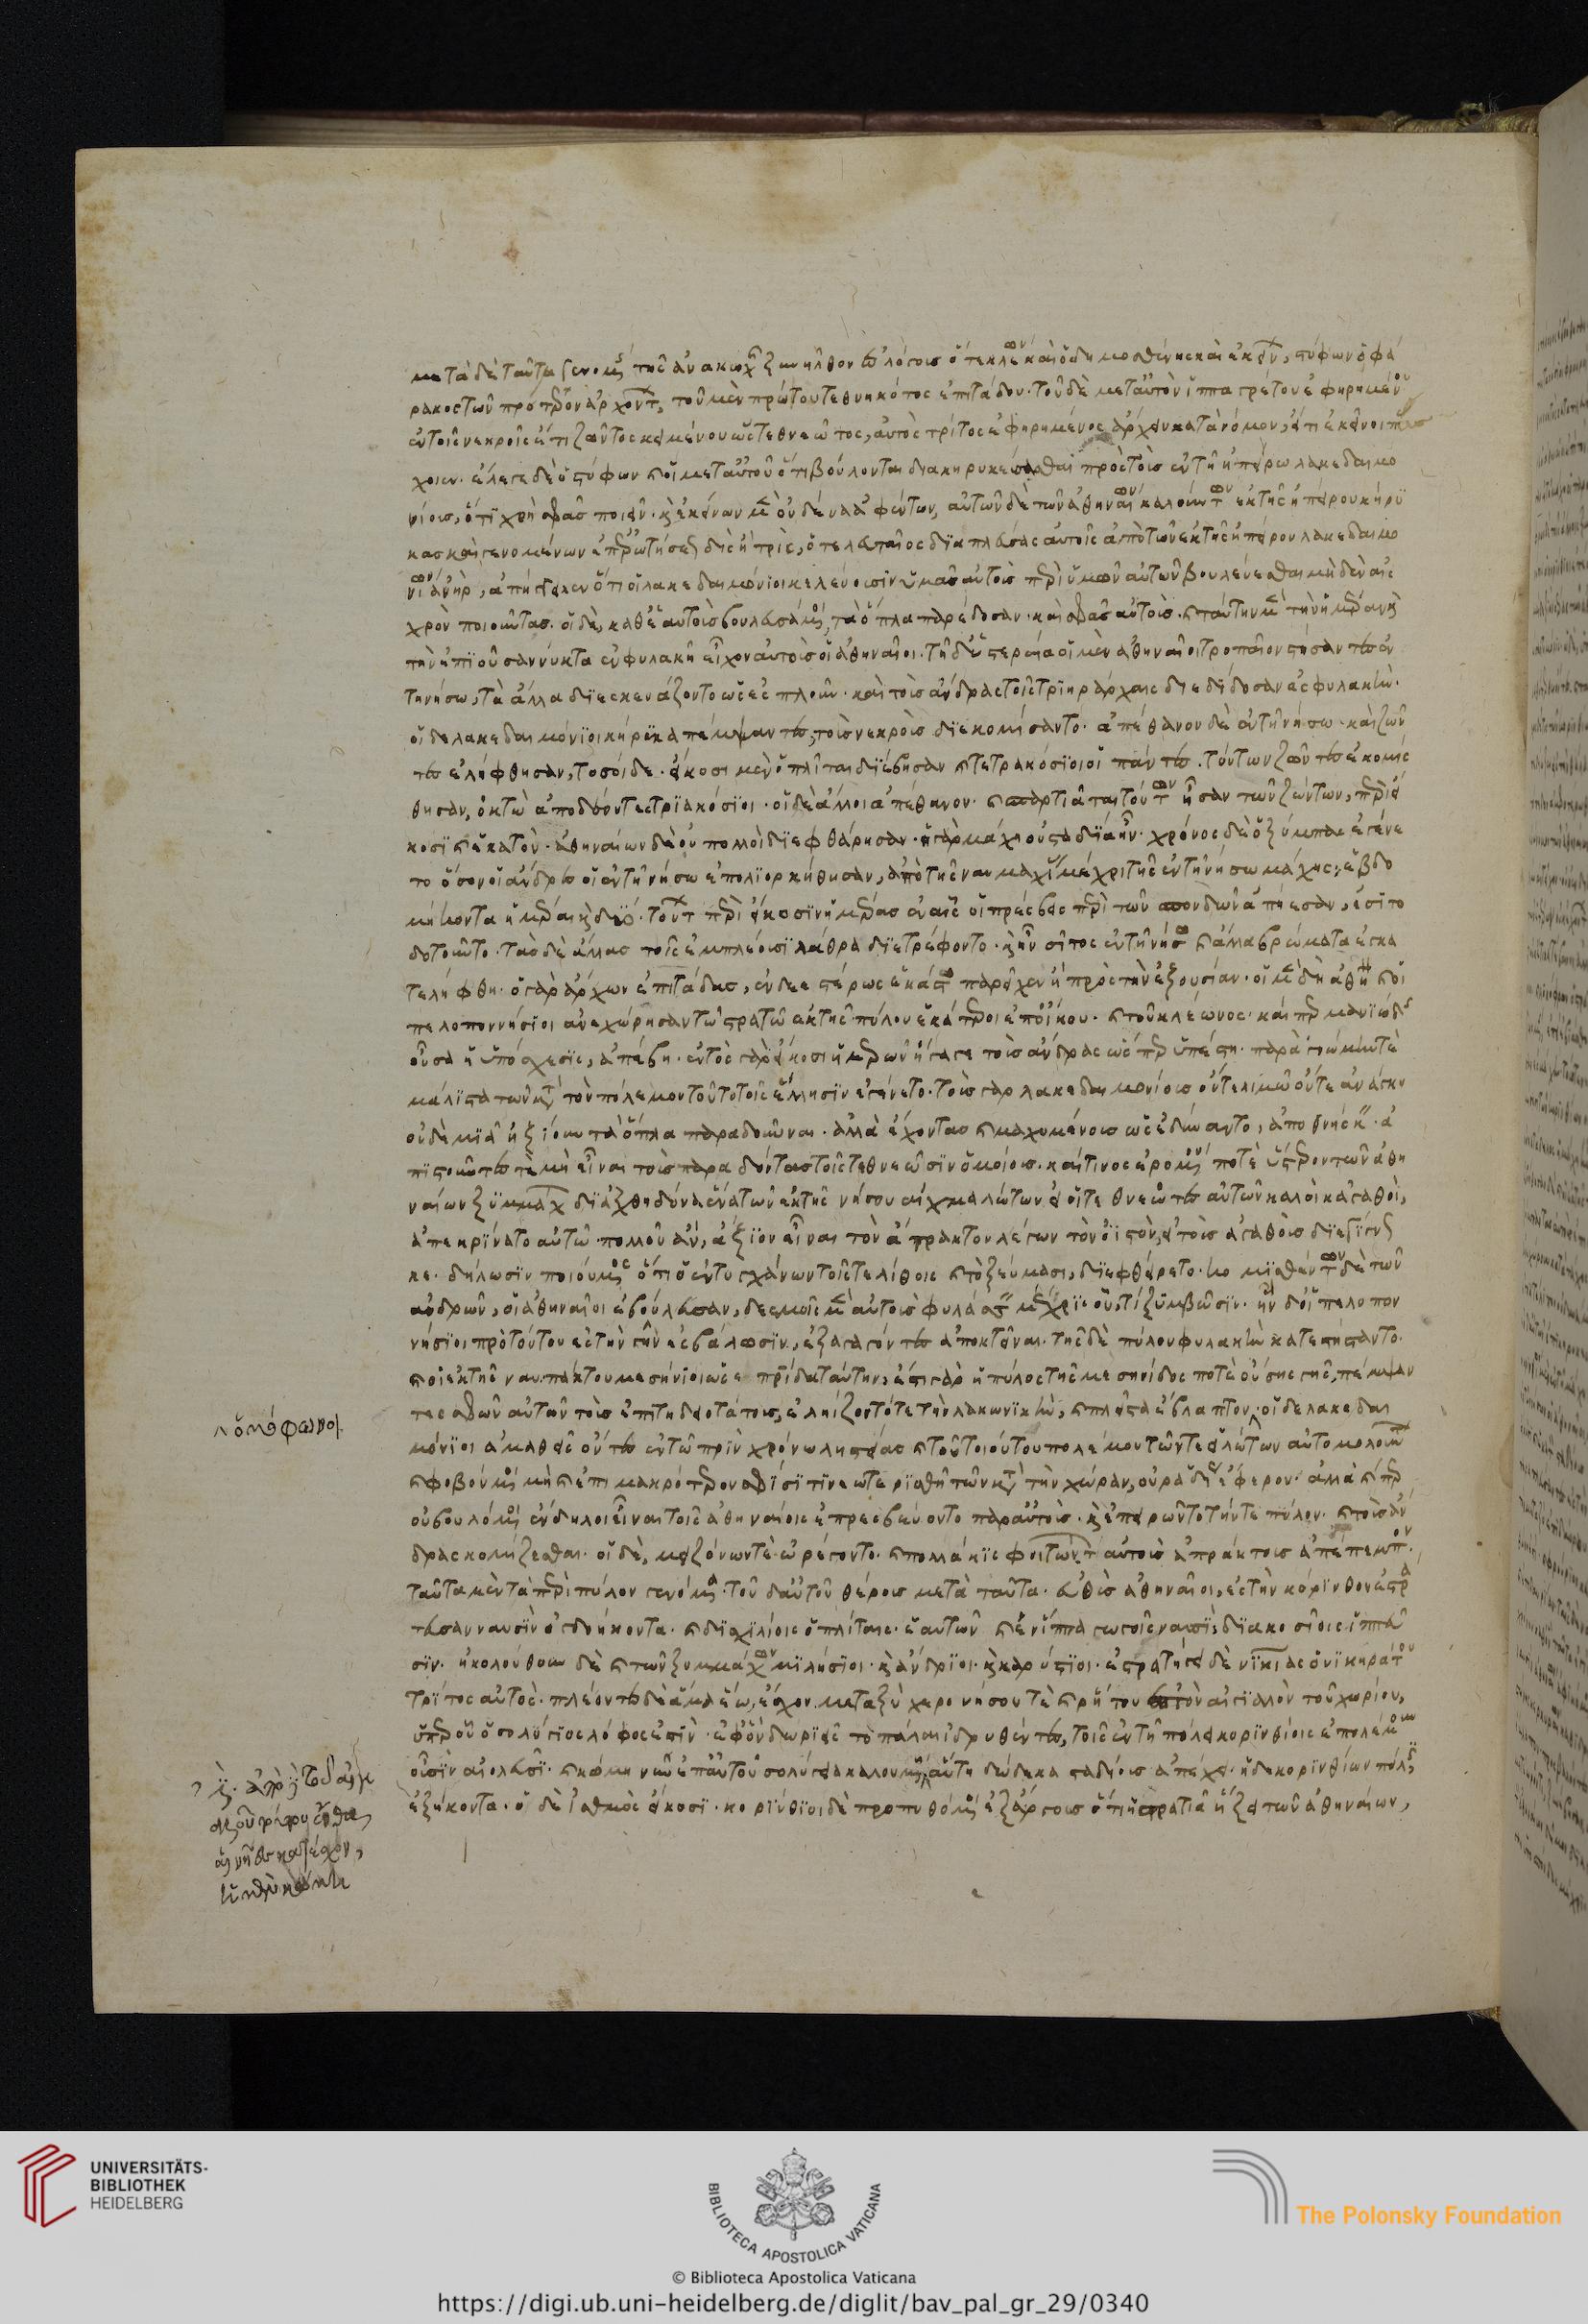 μετὰ δὲ ταῦτα γενομένης τῆς ἀνακωχῆς ξυνῆλθον ἐς λόγους ὅ τε κλέων καὶ ὁ δημοσθένης καὶ ἐκείνων, στύφων ὁ φά
ρακος τῶν πρότερον ἀρχόντων, τοῦ μὲν πρώτου τεθνηκότος ἐπιτάδου. τοῦ δὲ μετ αὐτὸν ἱππαγρέτου ἐφηρημένου
ἐν τοῖς νεκροῖς ἔτι ζῶντος κειμένου ὡς τεθνεῶτος, αὐτὸς τρίτος ἐφηρημένος ἄρχειν κατὰ νόμον, εἴ τι ἐκεῖνοι πάσ
χοιεν. ἔλεγε δὲ ὁ στύφων καὶ οἱ μετ αὐτοῦ ὅτι βούλονται διακηρυκεύσασθαι πρὸς τοὺς ἐν τῇ ἠπείρω λακεδαιμο
νίους, ὅτι χρὴ σφᾶς ποιεῖν. καὶ ἐκείνων μὲν οὐδένα ἀφέντων, αὐτῶν δὲ τῶν ἀθηναίων καλούντων ἐκ τῆς ἠπείρου κήρυ
κας καὶ γενομένων ἐπερωτήσεων δὶς ἢ τρὶς, ὁ τελευταῖος διαπλεύσας αὐτοῖς ἀπὸ τῶν ἐκ τῆς ἠπείρου λακεδαιμο
νίων ἀνὴρ, ἀπήγγειλεν ὅτι οἱ λακεδαιμόνιοι κελεύουσιν ὑμᾶς αὐτοὺς περὶ ὑμῶν αὐτῶν βουλεύεσθαι μηδὲν αἰσ
χρὸν ποιοῦντας. οἱ δὲ, καθ ἑαυτοὺς βουλευσάμενοι, τὰ ὅπλα παρέδοσαν. καὶ σφᾶς αὐτούς. καὶ ταύτην μὲν τὴν ἡμέραν καὶ
τὴν ἐπιοῦσαν νύκτα ἐν φυλακῇ εἶχον αὐτοὺς οἱ ἀθηναῖοι. τῇ δ ὑστεραία οἱ μὲν ἀθηναῖοι τροπαῖον στήσαντες ἐν
τῇ νήσω, τὰ ἄλλα διεσκευάζοντο ὡς ἐς πλοῦν. καὶ τοὺς ἄνδρας τοῖς τριηράρχαις διεδίδοσαν ἐς φυλακὴν.
οἱ δὲ λακεδαιμόνιοι κήρυκα πέμψαντες, τοὺς νεκροὺς διεκομίσαντο. ἀπέθανον δὲ ἐν τῇ νήσω. καὶ ζῶν
τες ἐλήφθησαν, τοσοίδε. εἴκοσι μὲν ὁπλῖται διέβησαν καὶ τετρακόσιοι οἱ πάντες. τούτων ζῶντες ἐκομίσ
θησαν, ὀκτὼ ἀποδέοντες τριακόσιοι. οἱ δὲ ἄλλοι ἀπέθανον. καὶ σπαρτιᾶται τούτων ἦσαν τῶν ζώντων, περὶ εἴ
κοσι καὶ ἑκατὸν. ἀθηναίων δὲ οὐ πολλοὶ διεφθάρησαν. ἡ γὰρ μάχη οὐ σταδία ἦν. χρόνος δὲ ὁ ξύμπας ἐγένε
το ὅσον οἱ ἄνδρες οἱ ἐν τῇ νήσω ἐπολιορκήθησαν, ἀπὸ τῆς ναυμαχίας μέχρι τῆς ἐν τῇ νήσω μάχης, ἑβδο
μήκοντα ἡμέραι καὶ δύο. τούτων περὶ εἴκοσιν ἡμέρας ἐν αἷς οἱ πρέσβεις περὶ τῶν σπονδῶν ἀπήεσαν, ἐσιτο
δοτοῦντο. τὰς δὲ ἄλλας τοῖς ἐσπλέουσι λάθρα διετρέφοντο. καὶ ἦν σῖτος ἐν τῇ νήσω καὶ ἄλλα βρώματα ἐγκα
τελήφθη. ὁ γὰρ ἄρχων ἐπιτάδας, ἐνδεεστέρως ἑκάστω παρεῖχεν ἢ πρὸς τὴν ἐξουσίαν. οἱ μὲν δὴ ἀθηναῖοι καὶ οἱ
πελοποννήσιοι ἀνεχώρησαν τῶ στρατῶ ἐκ τῆς πύλου ἑκάτεροι ἐπ οἴκου. καὶ τοῦ κλέωνος. καίπερ μανιώδης
οὖσα ἡ ὑπόσχεσις, ἀπέβη. ἐντὸς γὰρ εἴκοσι ἡμερῶν ἤγαγε τοὺς ἄνδρας ὥσπερ ὑπέστη. παρὰ γνώμην τὲ
μάλιστα τῶν κατὰ τὸν πόλεμον τοῦτο τοῖς ἕλλησιν ἐγένετο. τοὺς γὰρ λακεδαιμονίους οὔτε λιμῶ οὔτε ἀνάγκη
οὐδεμιᾶ ἠξίουν τὰ ὅπλα παραδοῦναι. ἀλλὰ ἔχοντας καὶ μαχομένους ὡς ἐδύναντο, ἀποθνήσκειν. ἀ
πιστοῦντες τὲ μὴ εἶναι τοὺς παραδόντας τοῖς τεθνεῶσιν ὁμοίους. καί τινος ἐρομένου ποτὲ ὕστερον τῶν ἀθη
ναίων ξυμμάχων δι ἀχθηδόνα ἕνα τῶν ἐκ τῆς νήσου αἰχμαλώτων εἰ οἱ τεθνεῶτες αὐτῶν καλοὶ κἀγαθοὶ,
ἀπεκρίνατο αὐτῶ πολλοῦ ἂν, ἄξιον εἶναι τὸν ἄτρακτον λέγων τὸν οἰστὸν, εἰ τοὺς ἀγαθοὺς διεγίγνω
σκε. δήλωσιν ποιούμενος ὅτι ὁ ἐντυγχάνων τοῖς τε λίθοις καὶ τοξεύμασι, διεφθείρετο. κομισθέντων δὲ τῶν
ἀνδρῶν, οἱ ἀθηναῖοι ἐβούλευσαν, δεσμοῖς μὲν αὐτοὺς φυλάσσειν μέχρις οὗ, τὶ ξυμβῶσιν. ἢν δ οἱ πελοπον
νήσιοι πρὸ τούτου ἐς τὴν γῆν ἐσβάλωσιν, ἐξαγαγόντες ἀποκτεῖναι. τῆς δὲ πύλου φυλακὴν κατεστήσαντο.
καὶ οἱ ἐκ τῆς ναυπάκτου μεσήνιοι ὡς ἐς πατρίδα ταύτην, ἔστι γὰρ ἡ πύλος τῆς μεσηνίδος ποτὲ οὔσης γῆς, πέμψαν
τες σφῶν αὐτῶν τοὺς ἐπιτηδειοτάτους, ἐλήϊζον τότε τὴν λακωνικὴν, καὶ πλεῖστα ἔβλαπτον οἱ δὲ λακεδαι
ὁμόφωνοι
μόνιοι ἀμαθεῖς ὄντες ἐν τῶ πρὶν χρόνω ληστείας καὶ τοῦ τοιούτου πολέμου τῶν τε εἱλώτων αὐτομολούντων
καὶ φοβούμενοι μὴ καὶ ἐπὶ μακρότερον σφίσι τι νεωτερισθῇ τῶν κατὰ τὴν χώραν, οὐ ῥαδίως ἔφερον. ἀλλὰ καίπερ
οὐ βουλόμενοι ἔνδηλοι εἶναι τοῖς ἀθηναίοις ἐπρεσβεύοντο παρ αὐτοὺς. καὶ ἐπειρῶντο τήν τε πύλον. καὶ τοὺς ἄν
δρας κομίζεσθαι. οἱ δὲ, μειζόνων τὲ ὠρέγοντο. καὶ πολλάκις φοιτώντων αὐτοὺς ἀπράκτους ἀπέπεμπον.
ταῦτα μὲν τὰ περὶ πύλον γενόμενα. τοῦ δ αὐτοῦ θέρους μετὰ ταῦτα. εὐθὺς ἀθηναῖοι, ἐς τὴν κορινθίαν ἐστρά
τευσαν ναυσὶν ὀγδοήκοντα. καὶ δισχιλίοις ὁπλίταις. ἑαυτῶν καὶ ἐν ἱππαγωγοῖς ναυσὶ, διακοσίοις ἱππεῦ
σιν. ἠκολούθουν δὲ καὶ τῶν ξυμμάχων μιλήσιοι. καὶ ἄνδριοι. καὶ καρύστιοι. ἐστρατήγει δὲ νικίας ὁ νικηράτου
τρίτος αὐτὸς. πλέοντες δὲ ἅμα ἕω, ἔσχον μεταξὺ χερσονήσου τὲ καὶ ῥείτου ἐς τὸν αἰγιαλὸν τοῦ χωρίου,
ὑπὲρ οὗ ὁ σολύγιος λόφος ἐστὶν. ἐφ ὃν δωριεῖς τὸ πάλαι ἱδρυθέντες, τοῖς ἐν τῇ πόλει κορινθίοις ἐπολέμουν
οὖσιν αἰολεῦσι. καὶ κώμη νῦν ἐπ αὐτοῦ σολύγεια καλουμένη αὕτη δώδεκα σταδίους ἀπέχει. ἡ δὲ κορινθίων πόλις
ἑξήκοντα. ὁ δὲ ἰσθμὸς εἴκοσι. κορίνθιοι δὲ προπυθόμενοι ἐξ ἄργους ὅτι ἡ στρατιὰ ἥξει τῶν ἀθηναίων,
© Biblioteca Apostolica Vaticana
https://digi.ub.uni-heidelberg.de/diglit/bav_pal_gr_29/0340
UNIVERSITÄTS-
BIBLIOTHEK
HEIDELBERG
BIBLIOTECA APOSTOLICA VATICANA
The Polonsky Foundation